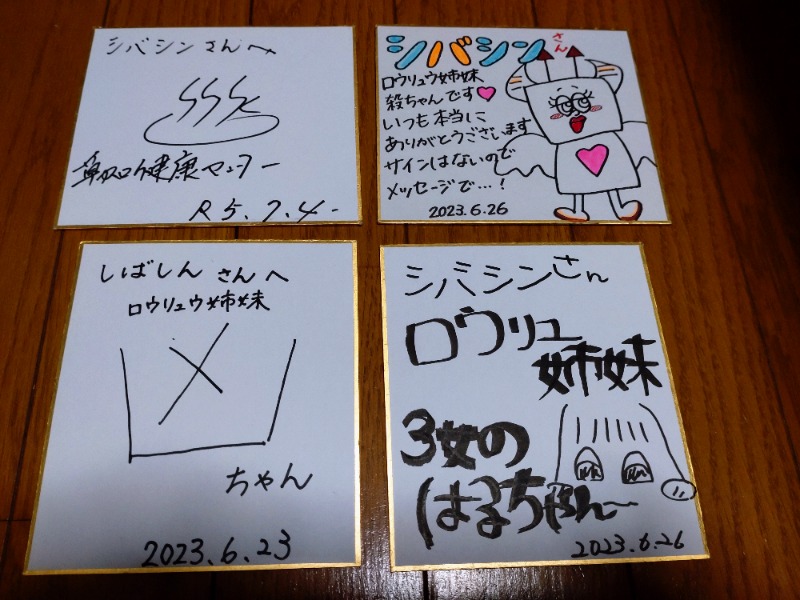 シバシンさんへ
草加健康センター
R5.7.4
シバシンさん
ロウリュウ姉妹
殺ちゃんです
いつも本当に
ありがとうございます
サインはないので
メッセージで…!
2023.6.26
しばしんさんへ
ロウリュウ姉妹
ちゃん
2023.6.23
シバシンさん
ロウリュ
姉妹
3女の
はるちゃん
2023.6.26